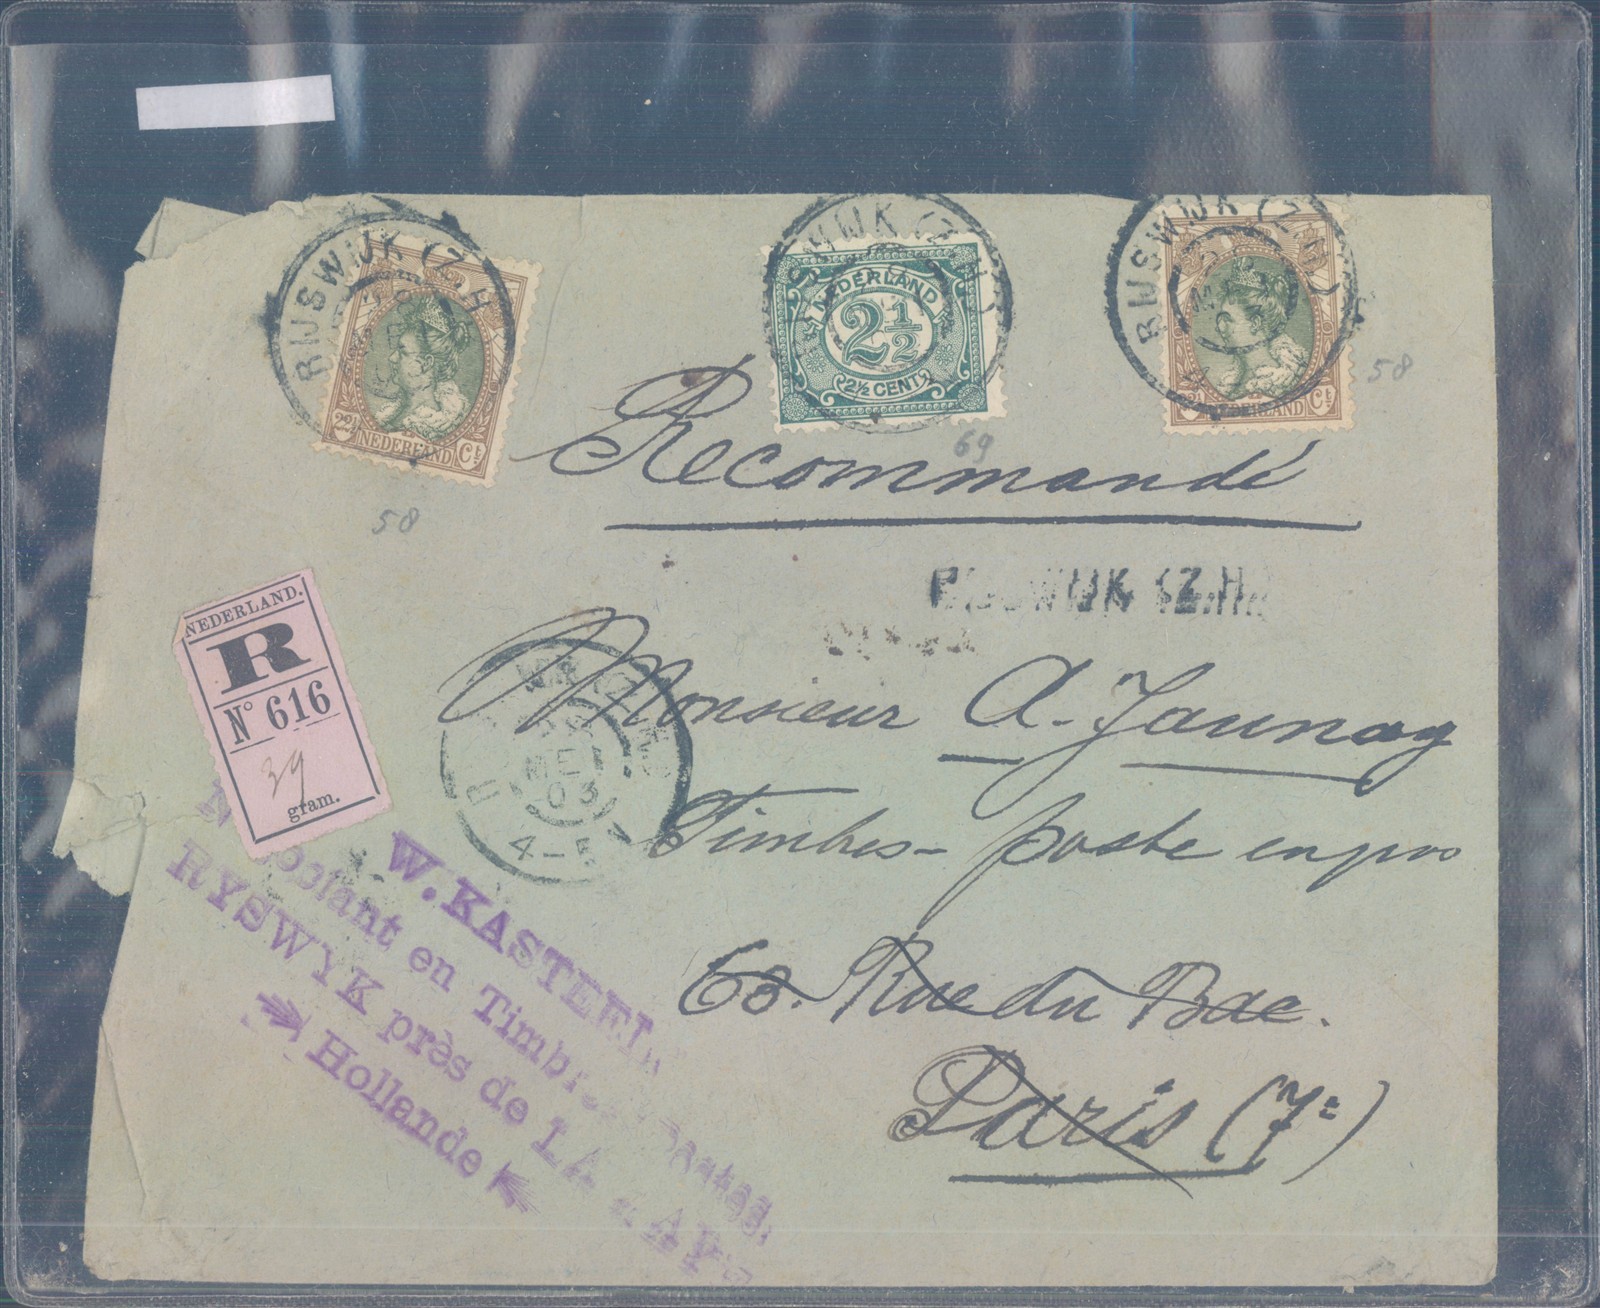 RIJSWIJK (Z.H.)
22½ NEDERLAND Ct
RIJSWIJK (Z.H.)
NEDERLAND
2½
2½ CENT
RIJSWIJK (Z.H.)
NEDERLAND Ct
58
69
58
Recommandé
RIJSWIJK (Z.H.
NEDERLAND.
R
N° 616
39
gram.
ME
03
4-5
Monsieur A. Jaunay
Timbres-poste en gros
68. Rue du Bac.
Paris (7e)
W. KASTEEL
Négociant en Timbres-
RYSWYK près de LA HAYE
Hollande